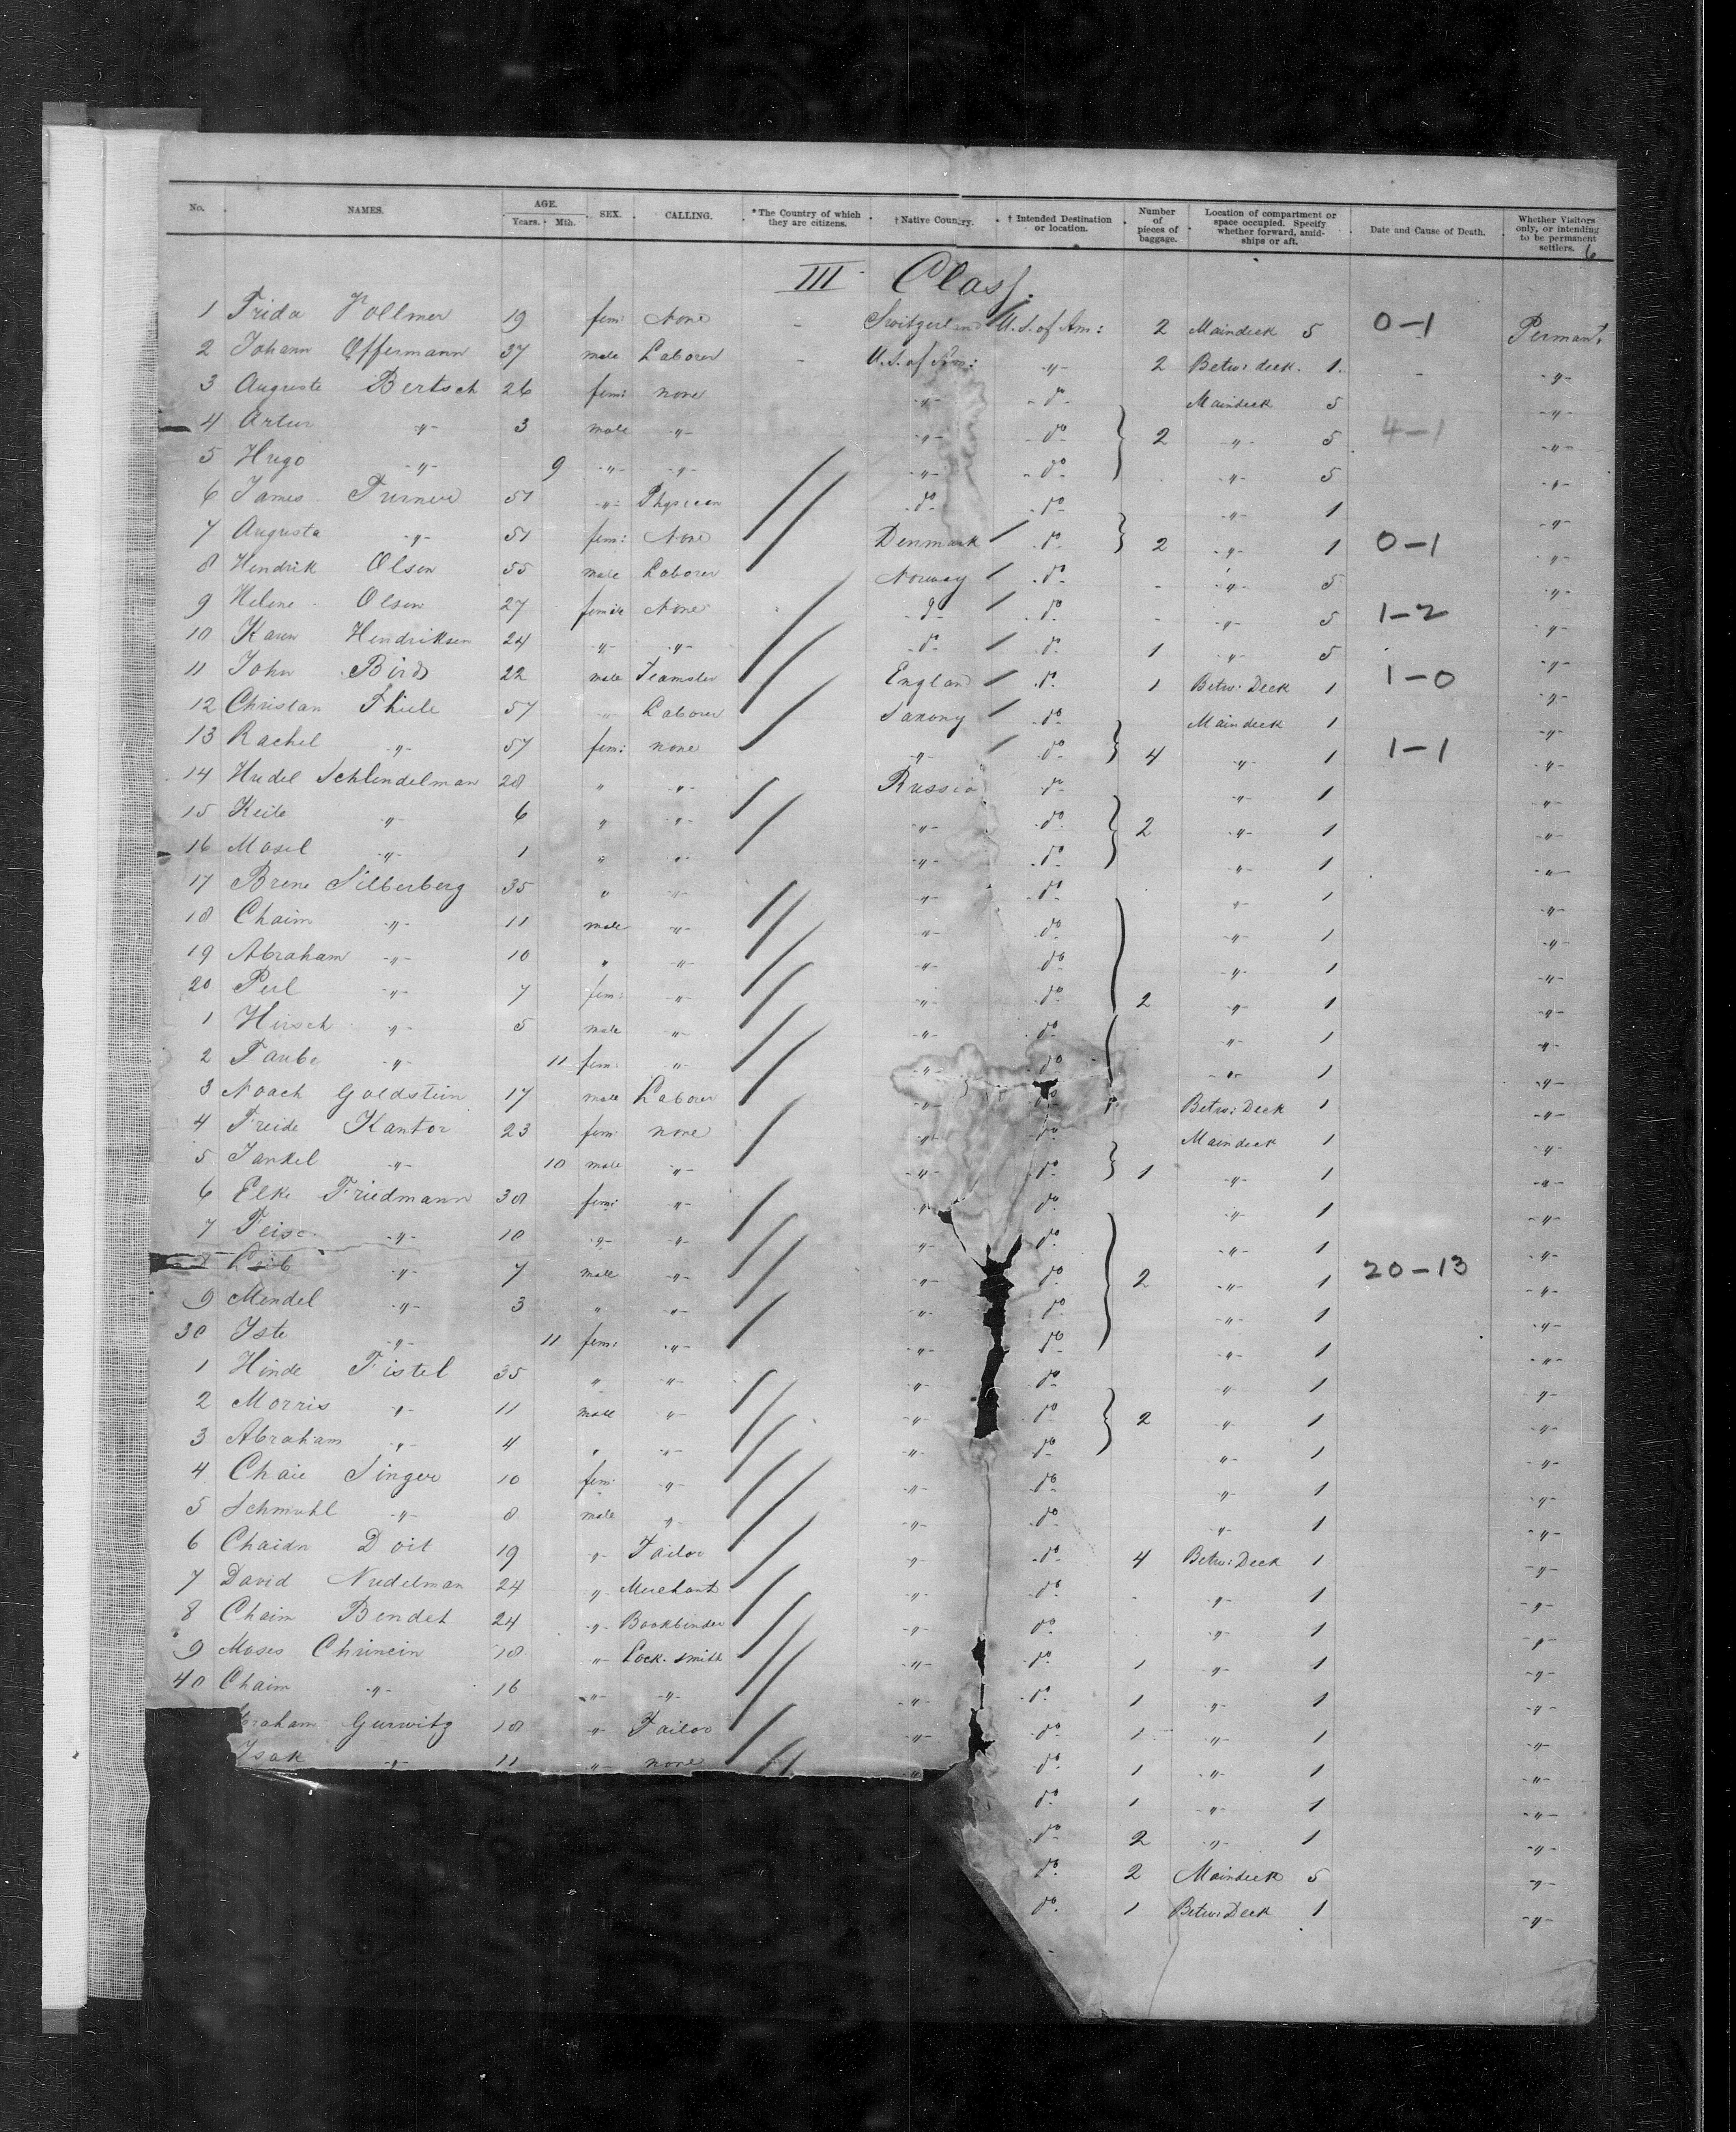 No. NAMES. AGE. Years. Mth. SEX. CALLING. *The Country of which they are citizens. †Native Country. †Intended Destination or location. Number of pieces of baggage. Location of compartment or space occupied. Specify whether forward, amidships or aft. Date and Cause of Death. Whether Visitors only, or intending to be permanent settlers. 6
III Class.
1 Frida Vollmer 19 fem: None - Switzerland U.S. of Am: 2 Maindeck 5 0-1 Permant.
2 Johann Offermann 37 male Laborer - U.S. of Am: -"- 2 Betw: deck. 1. - -"-
3 Auguste Bertsch 26 fem: none -"- -do- Maindeck 5 -"-
4 Artur -"- 3 male -"- -"- -do- 2 -"- 5 4-1 -"-
5 Hugo -"- 9 -"- -"- -"- -do- -"- 5 -"-
6 James Turner 51 -"- Physician do do -"- 1 -"-
7 Augusta -"- 51 fem: None Denmark do 2 -"- 1 0-1 -"-
8 Hendrik Olsen 55 male Laborer Norway do - -"- 5 -"-
9 Helene Olsen 27 female None do do - -"- 5 1-2 -"-
10 Karen Hendriksen 24 -"- -"- do do 1 -"- 5 -"-
11 John Bird 22 male Teamster England do 1 Betw: Deck 1 1-0 -"-
12 Christan Thiele 57 -"- Laborer Saxony do Maindeck 1 -"-
13 Rachel -"- 57 fem: none -"- do 4 -"- 1 1-1 -"-
14 Hudel Schlendelman 28 " -"- Russia do -"- 1 -"-
15 Keile -"- 6 " -"- -"- do 2 -"- 1 -"-
16 Mosel -"- 1 " -"- -"- do -"- 1 -"-
17 Brene Silberberg 35 " -"- -"- do -"- 1 -"-
18 Chaim -"- 11 male -"- -"- do -"- 1 -"-
19 Abraham -"- 10 " -"- -"- do -"- 1 -"-
20 Perl -"- 7 fem: -"- -"- do 2 -"- 1 -"-
1 Hirsch -"- 5 male -"- -"- do -"- 1 -"-
2 Taube -"- 11 fem: -"- -"- do -"- 1 -"-
3 Noach Goldstein 17 male Laborer -"- do Betw: Deck 1 -"-
4 Freide Kantor 23 fem: none -"- do Maindeck 1 -"-
5 Jankel -"- 10 male -"- -"- do 1 -"- 1 -"-
6 Elke Friedmann 38 fem: -"- -"- do -"- 1 -"-
7 -"- 10 -"- -"- -"- do -"- 1 -"-
8 Leib -"- 7 male -"- -"- do 2 -"- 1 20-13 -"-
9 Mendel -"- 3 " -"- -"- do -"- 1 -"-
30 Iste -"- 11 fem: -"- -"- do -"- 1 -"-
1 Hinde Fistel 35 " -"- -"- do -"- 1 -"-
2 Morris -"- 11 male -"- -"- do 2 -"- 1 -"-
3 Abraham -"- 4 " -"- -"- do -"- 1 -"-
4 Chaie Singer 10 fem: -"- -"- do -"- 1 -"-
5 Schmuhl -"- 8 male -"- -"- do -"- 1 -"-
6 Doit 19 -"- Tailor -"- do 4 Betw: Deck 1 -"-
7 David Nudelman 24 -"- Merchant -"- do -"- 1 -"-
8 Chaim Bendet 24 -"- Bookbinder -"- do -"- 1 -"-
9 Moses 18 -"- Lock-smith -"- do 1 -"- 1 -"-
40 Chaim -"- 16 -"- -"- -"- do 1 -"- 1 -"-
raham Gurwitz 18 -"- Tailor -"- do 1 -"- 1 -"-
Isak -"- 11 -"- none -"- do 1 -"- 1 -"-
do 1 -"- 1 -"-
do 2 -"- 1 -"-
do 2 Maindeck 5 -"-
do 1 Betw: Deck 1 -"-